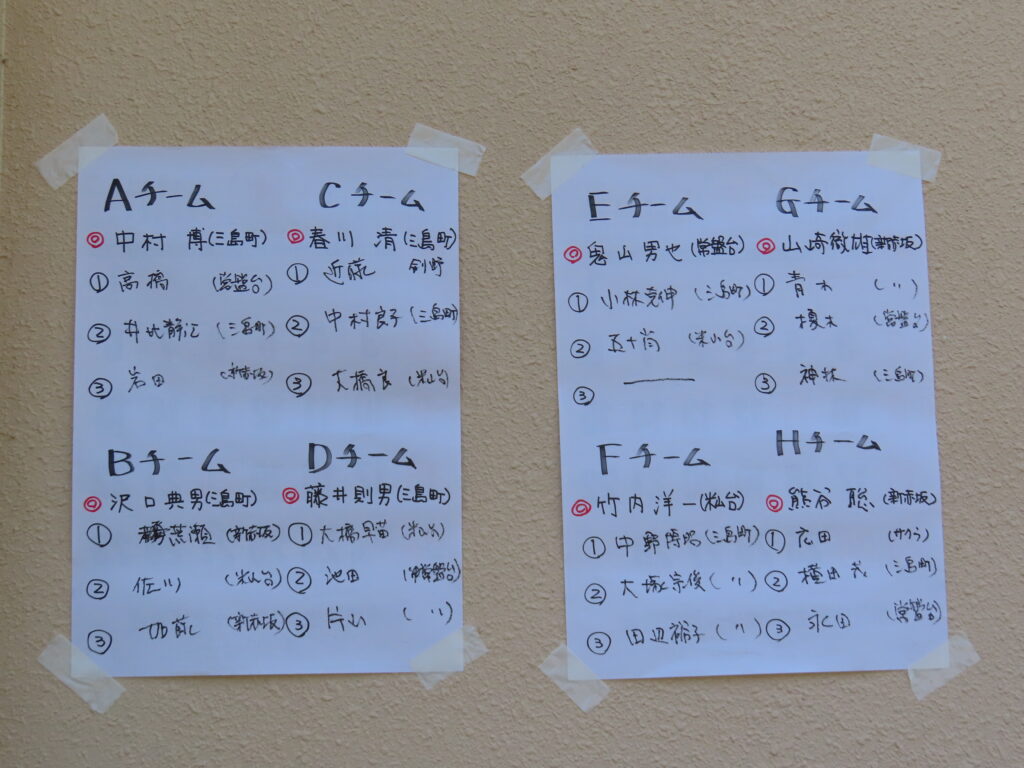 Aチーム
◎ 中村 博(三島町)
① 高橋 (常盤台)
② 井比静江 (三島町)
③ 岩田 (新赤坂)
Bチーム
◎ 沢口典男(三島町)
① 荒瀬 (新赤坂)
② 佐川 (米山台)
③ 加藤 (新赤坂)
Cチーム
◎ 春川 清(三島町)
① 近藤
② 中村良子(三島町)
③ 大橋良(米山台)
Dチーム
◎ 藤井則男(三島町)
① 大橋早苗(米山台)
② 池田 (常盤台)
③ 片山 (〃)
Eチーム
◎ 山男也(常盤台)
① 小林 (三島町)
② 五十嵐 (米山台)
③ ―
Fチーム
◎ 竹内洋一(米山台)
① 中野博昭(三島町)
② 大塚宗俊(〃)
③ 田辺裕子(〃)
Gチーム
◎ 山崎敏雄(新赤坂)
① 青木 (〃)
② 榎木 (常盤台)
③ 神林 (三島町)
Hチーム
◎ 熊谷 聡(新赤坂)
① 広田 (サクラ)
② 横田 (三島町)
③ 永田 (常盤台)